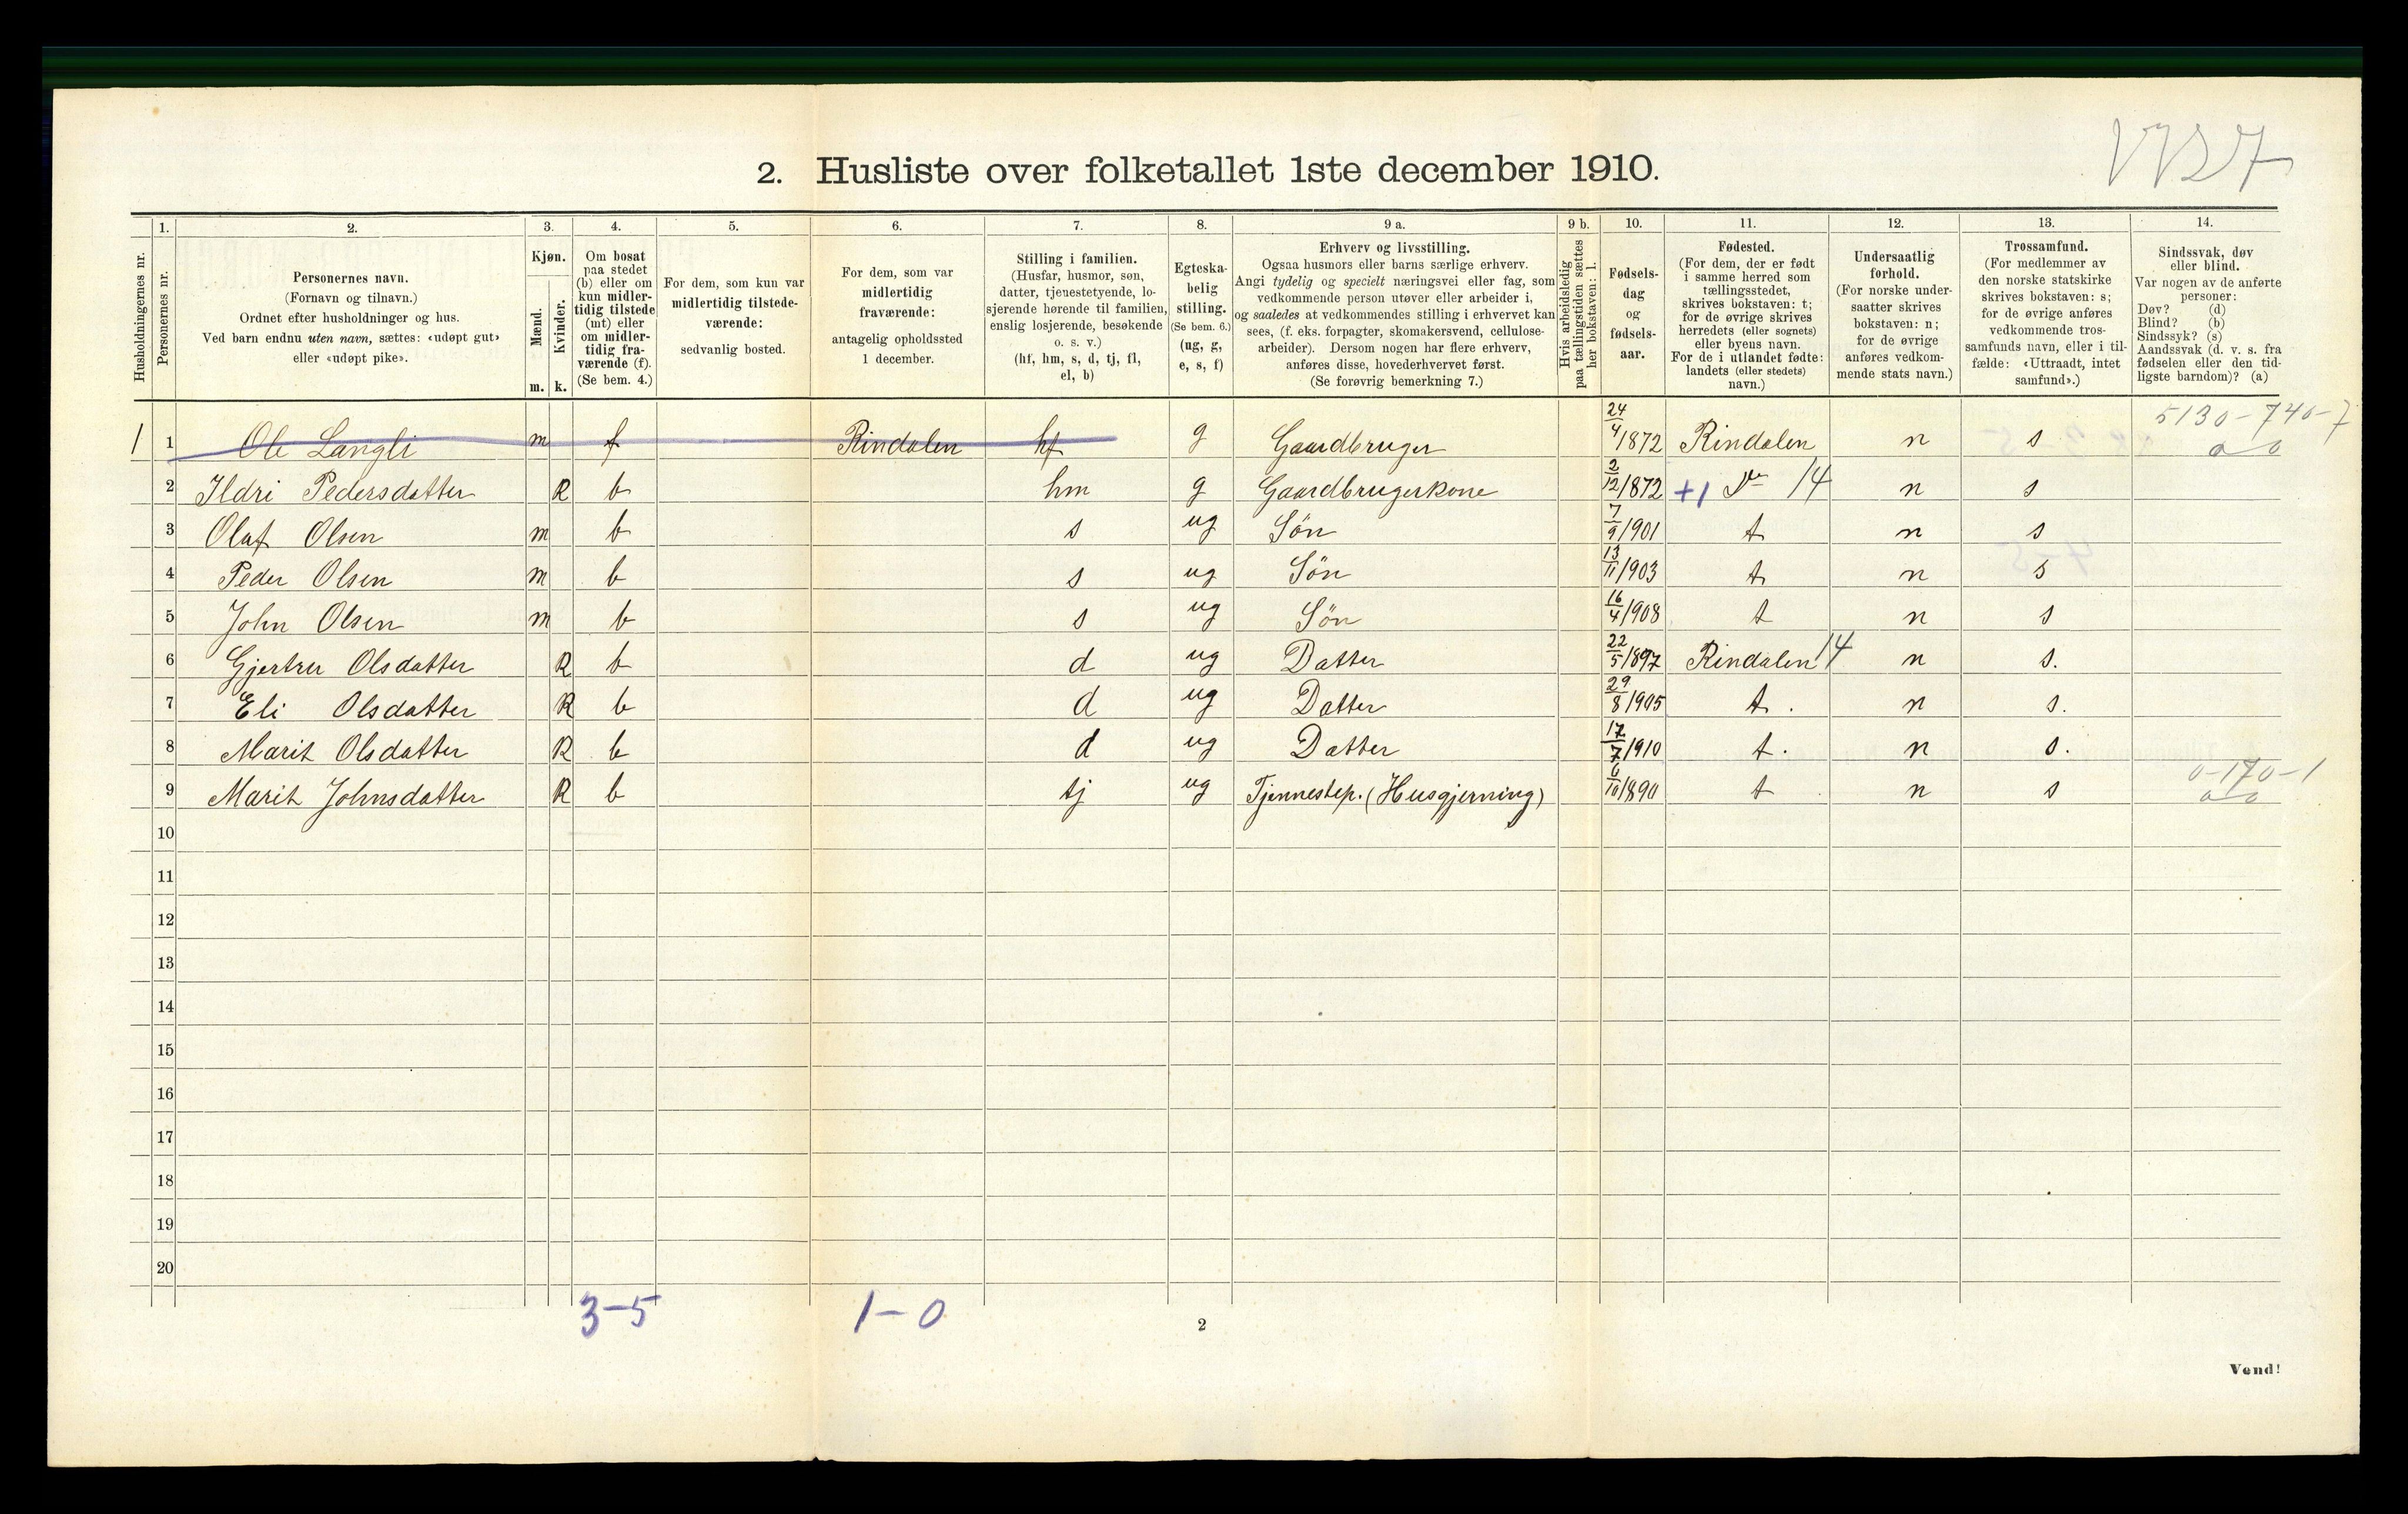 VV27
2. Husliste over folketallet 1ste december 1910.
Husholdningernes nr.
1.
Personernes nr.
2.
Personernes navn.
(Fornavn og tilnavn.)
Ordnet efter husholdninger og hus.
Ved barn endnu uten navn, sættes: «udøpt gut»
eller «udøpt pike».
3.
Kjøn.
Mænd.
Kvinder.
m. k.
4.
Om bosat
paa stedet
(b) eller om
kun midler-
tidig tilstede
(mt) eller
om midler-
tidig fra-
værende (f).
(Se bem. 4.)
5.
For dem, som kun var
midlertidig tilstede-
værende:
sedvanlig bosted.
6.
For dem, som var
midlertidig
fraværende:
antagelig opholdssted
1 december.
7.
Stilling i familien.
(Husfar, husmor, søn,
datter, tjenestetyende, lo-
sjerende hørende til familien,
enslig losjerende, besøkende
o. s. v.)
(hf, hm, s, d, tj, fl,
el, b)
8.
Egteska-
belig
stilling.
(Se bem. 6.)
(ug, g,
e, s, f)
9 a.
Erhverv og livsstilling.
Ogsaa husmors eller barns særlige erhverv.
Angi tydelig og specielt næringsvei eller fag, som
vedkommende person utøver eller arbeider i,
og saaledes at vedkommendes stilling i erhvervet kan
sees, (f. eks. forpagter, skomakersvend, cellulose-
arbeider). Dersom nogen har flere erhverv,
anføres disse, hovederhvervet først.
(Se forøvrig bemerkning 7.)
9 b.
Hvis arbeidsledig
paa tællingstiden sættes
her bokstaven: l.
10.
Fødsels-
dag
og
fødsels-
aar.
11.
Fødested.
(For dem, der er født
i samme herred som
tællingsstedet,
skrives bokstaven: t;
for de øvrige skrives
herredets (eller sognets)
eller byens navn.
For de i utlandet fødte:
landets (eller stedets)
navn.)
12.
Undersaatlig
forhold.
(For norske under-
saatter skrives
bokstaven: n;
for de øvrige
anføres vedkom-
mende stats navn.)
13.
Trossamfund.
(For medlemmer av
den norske statskirke
skrives bokstaven: s;
for de øvrige anføres
vedkommende tros-
samfunds navn, eller i til-
fælde: «Uttraadt, intet
samfund».)
14.
Sindssvak, døv
eller blind.
Var nogen av de anførte
personer:
Døv? (d)
Blind? (b)
Sindssyk? (s)
Aandssvak (d. v. s. fra
fødselen eller den tid-
ligste barndom)? (a)
1 1 Ole Langli m f Rindalen hf g Gaardbruger 24/4 1872 Rindalen n s 5130-740-7 0 0
2 Ildri Pedersdatter K b hm g Gaardbrugerkone 2/12 1872 +1 do 14 n s
3 Olaf Olsen m b s ug Søn 7/9 1901 t n s
4 Peder Olsen m b s ug Søn 13/11 1903 t n s
5 John Olsen m b s ug Søn 16/4 1908 t n s
6 Gjertru Olsdatter K b d ug Datter 22/5 1897 Rindalen 14 n s.
7 Eli Olsdatter K b d ug Datter 29/8 1905 t. n s.
8 Marit Olsdatter K b d ug Datter 17/7 1910 t. n s.
9 Marit Johnsdatter K b tj ug Tjennestep. (Husgjerning) 6/10 1890 t n s 0-170-1 0 0
10
11
12
13
14
15
16
17
18
19
20
3-5 1-0
2
Vend!